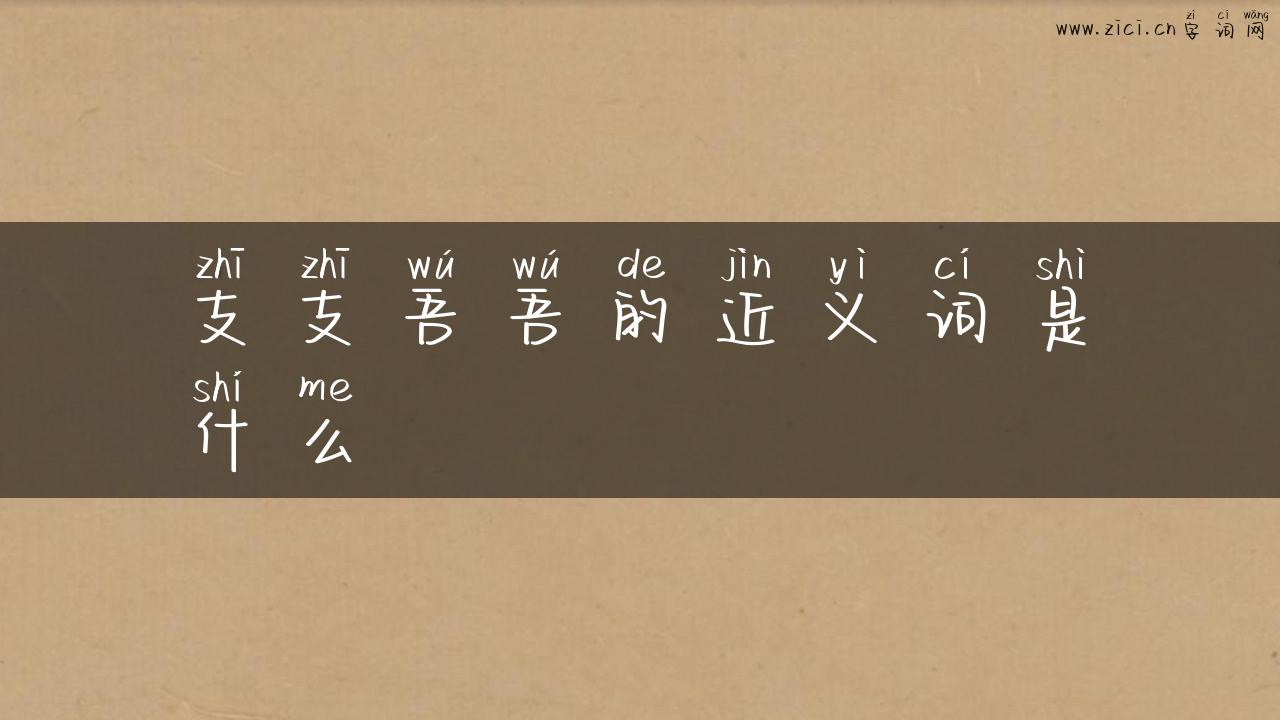 zì cí wǎng
www.zici.cn 字 词 网
zhī zhī wú wú de jìn yì cí shì
支 支 吾 吾 的 近 义 词 是
shí me
什 么